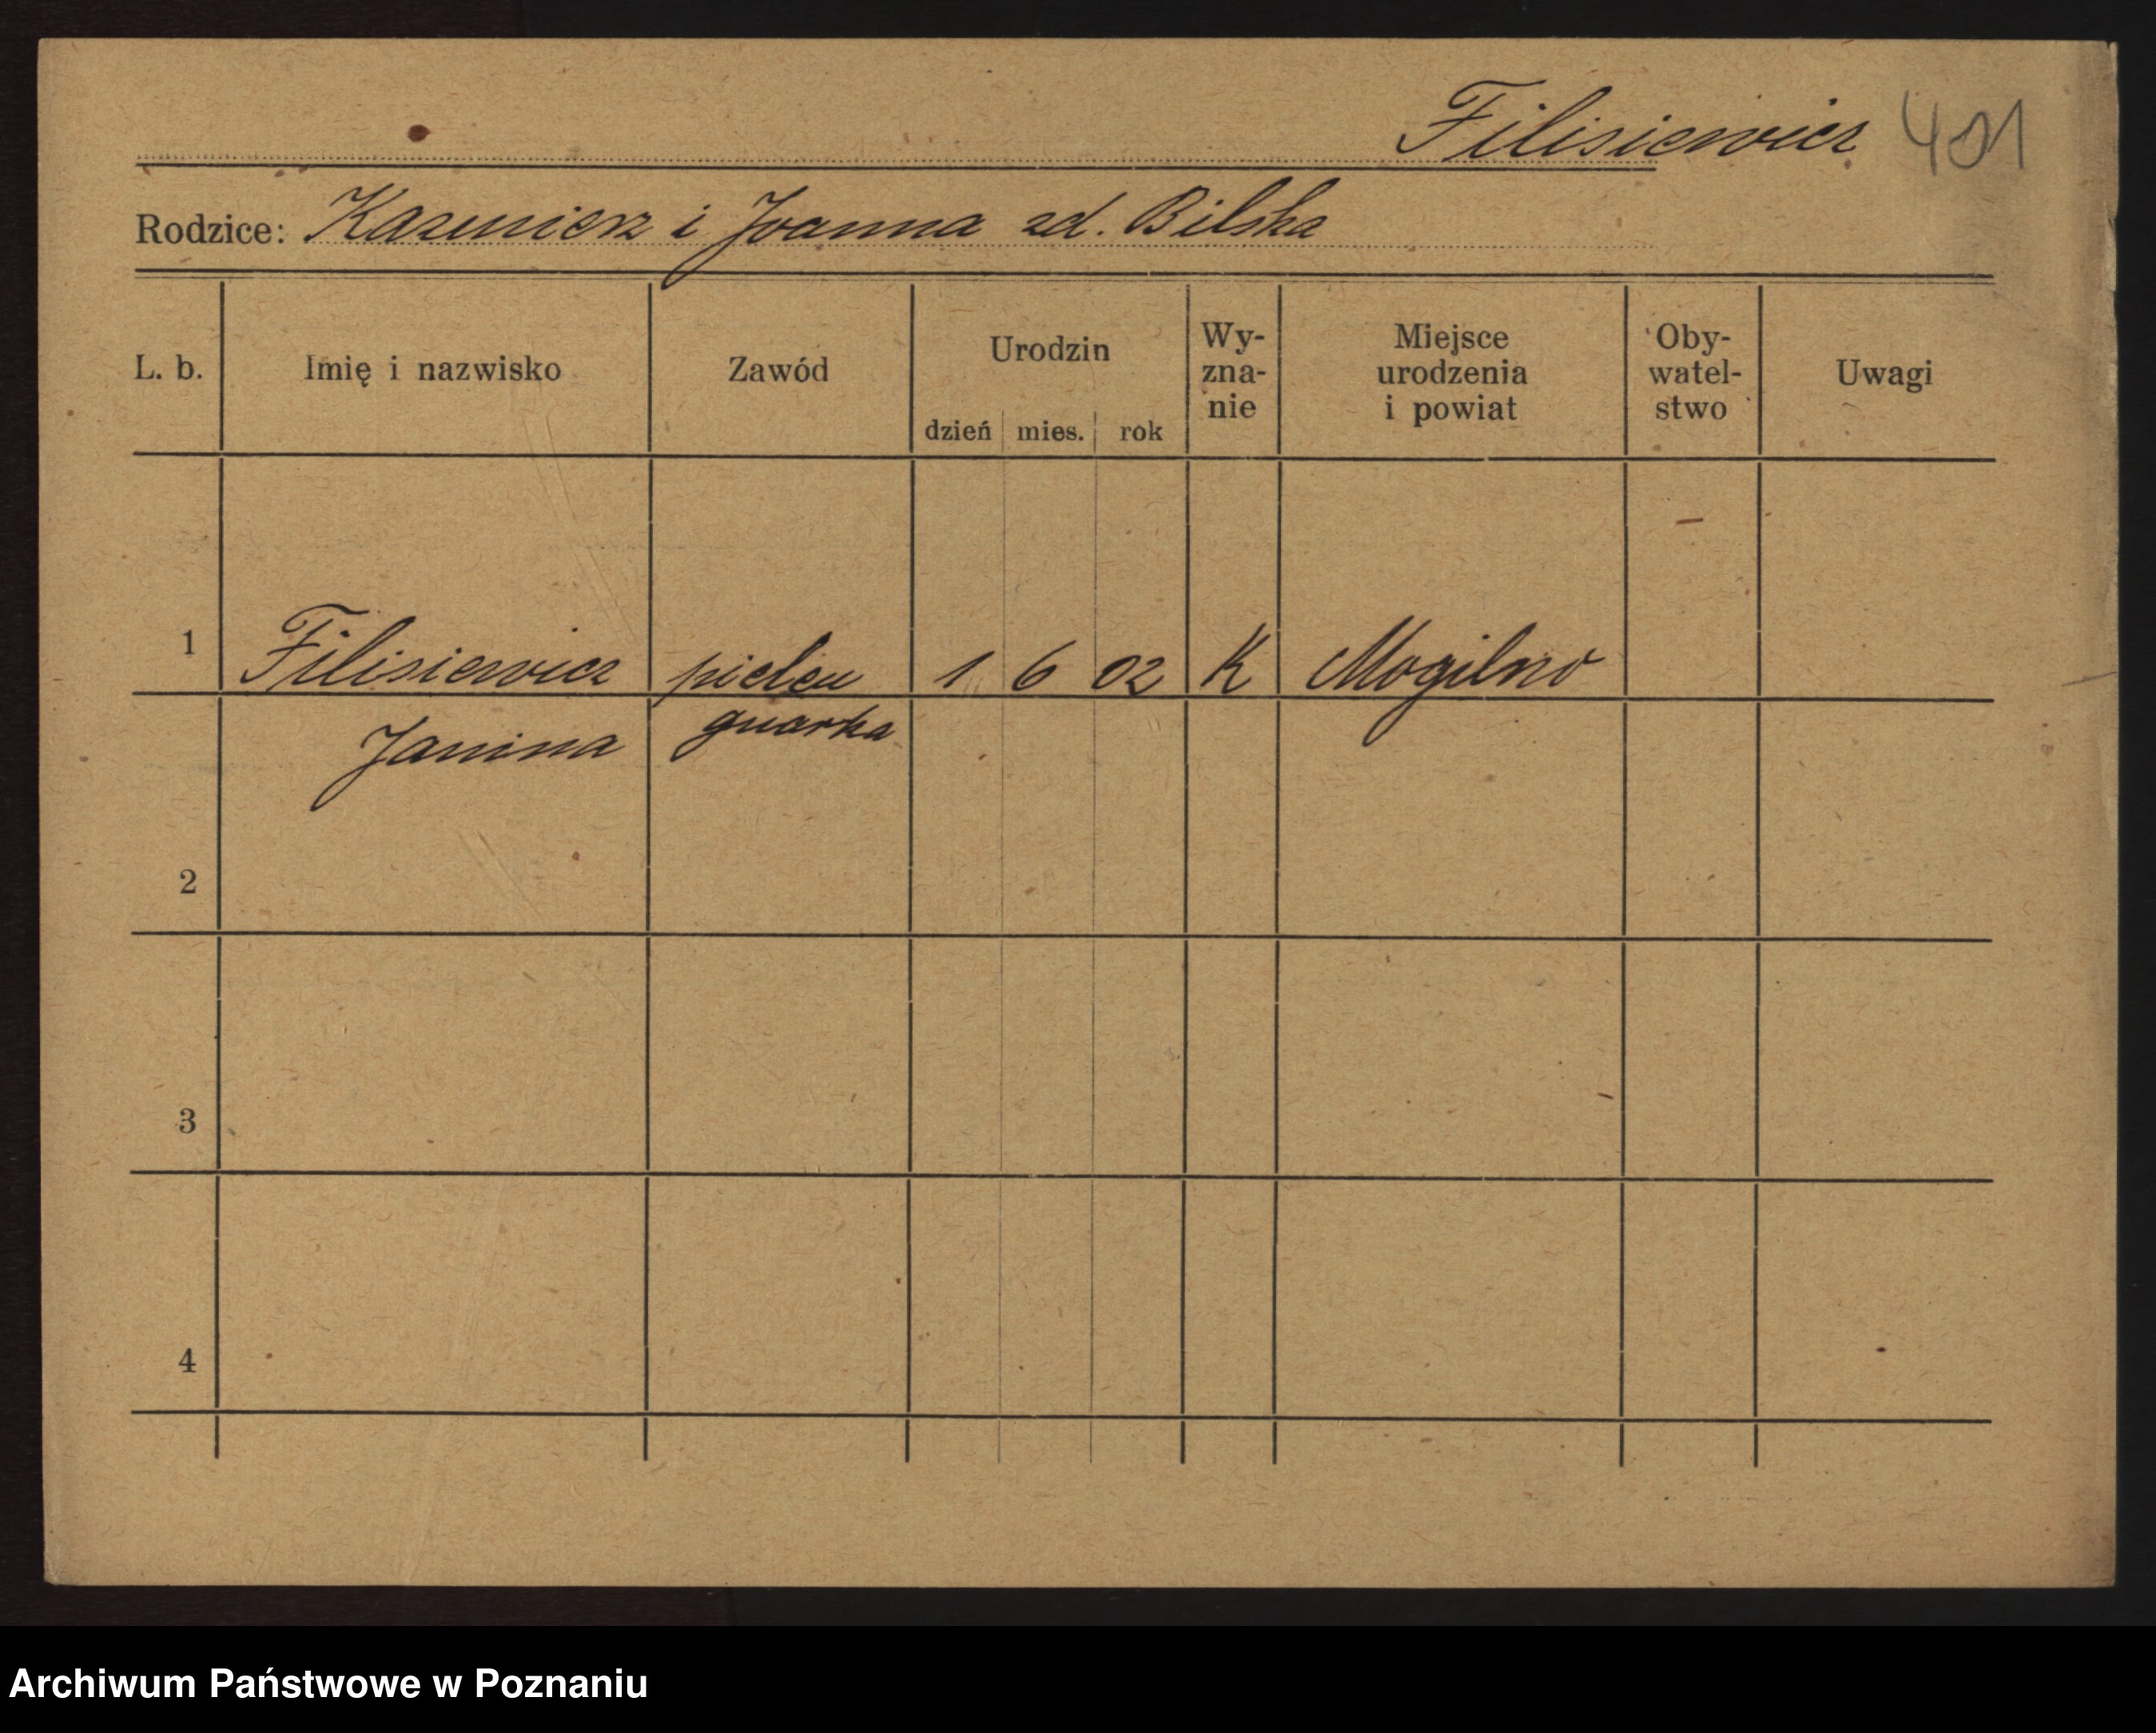 Filisiewicz 401
Rodzice: Kazmierz i Joanna zd. Bilska
L. b. Imię i nazwisko Zawód Urodzin dzień mies. rok Wy-zna-nie Miejsce urodzenia i powiat Oby-watel-stwo Uwagi
1 Filisiewicz pielęg 1 6 02 K Mogilno
Janina gniarka
2
3
4
Archiwum Państwowe w Poznaniu